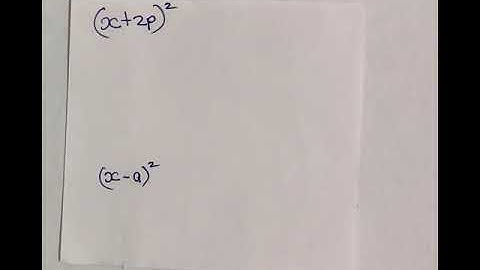 (x+2p)²
(x-a)²